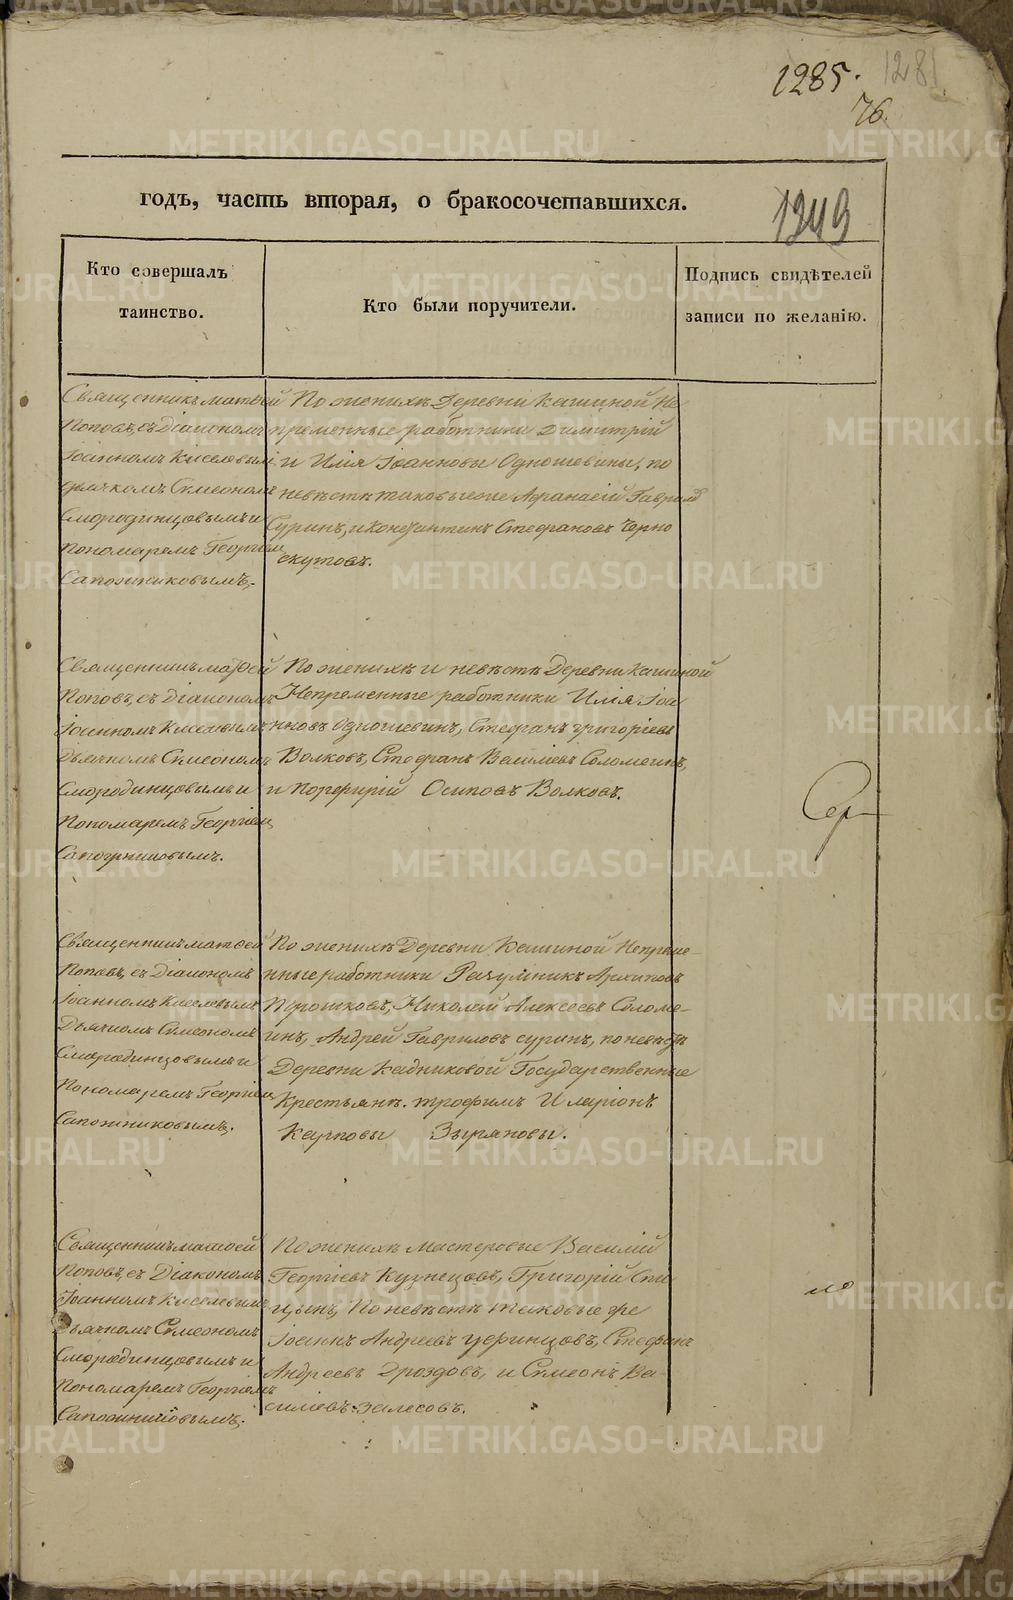 1285. 1281
76.
годъ, часть вторая, о бракосочетавшихся.
1349
Кто совершалъ
таинство.
Кто были поручители.
Подпись свидѣтелей
записи по желанію.
Священникъ Матѳей
Поповъ, съ Діакономъ
Іоанномъ Киселевымъ
дьячкомъ Симеономъ
Смородинцовымъ и
Пономаремъ Георгіем
Сапожниковымъ,-
По женихѣ Деревни Кашиной Не-
пременные работники Димитрій
и Илія Іоанновы Одношевины, по
невѣстѣ таковые же Афанасій Гаврилов
Суринъ, и Константинъ Стефановъ Черно
скутовъ.
Священникъ Матѳей
Поповъ, съ Діакономъ
Іоанномъ Киселевымъ
Дьячкомъ Симеономъ
Смородинцовымъ и
Пономаремъ Георгіем
Сапожниковымъ.
По женихѣ и невѣстѣ Деревни Кашиной
Непременные работники Илія Іоа
нновъ Одношевинъ, Стефанъ Григоріевъ
Волковъ, Стефанъ Васильевъ Соломеинъ,
и Порфирій Осиповъ Волковъ.
Священникъ Матѳей
Поповъ, съ Діакономъ
Іоанномъ Киселевымъ
Дьячкомъ Симеономъ
Смородинцовымъ и
Пономаремъ Георгіем
Сапожниковымъ.
По женихѣ Деревни Кашиной Непреме-
нные работники Разумникъ Архиповъ
Николай Алексеевъ Соломе-
инъ, Андрей Гавриловъ Суринъ, по невѣстѣ
Деревни Кадниковой Государственные
Крестьяне. Трофимъ Иларіонъ
Карповы Зыряновы.
Священникъ Матѳей
Поповъ, съ Діакономъ
Іоанномъ Киселевымъ
Дьячкомъ Симеономъ
Смородинцовымъ и
Пономаремъ Георгіемъ
Сапожниковымъ.
По женихѣ мастеровые Василій
Георгіевъ Кузнецовъ, Григорій
По невѣстѣ таковые же
Іоаннъ Андреевъ Стефанъ
Андреевъ Дроздовъ, и Симеонъ Ва-
силіевъ Залесовъ.
METRIKI.GASO-URAL.RU